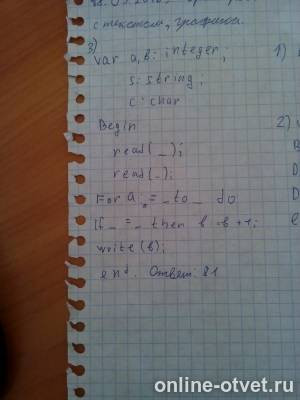 с текстом, графика.
3)
var a, b: integer;
s: string;
c: char
1)
Begin
read(_);
read(_);
2)
For a := _ to _ do
If _ = _ then b = b + 1;
write(b);
end. Ответ: 81
online-otvet.ru